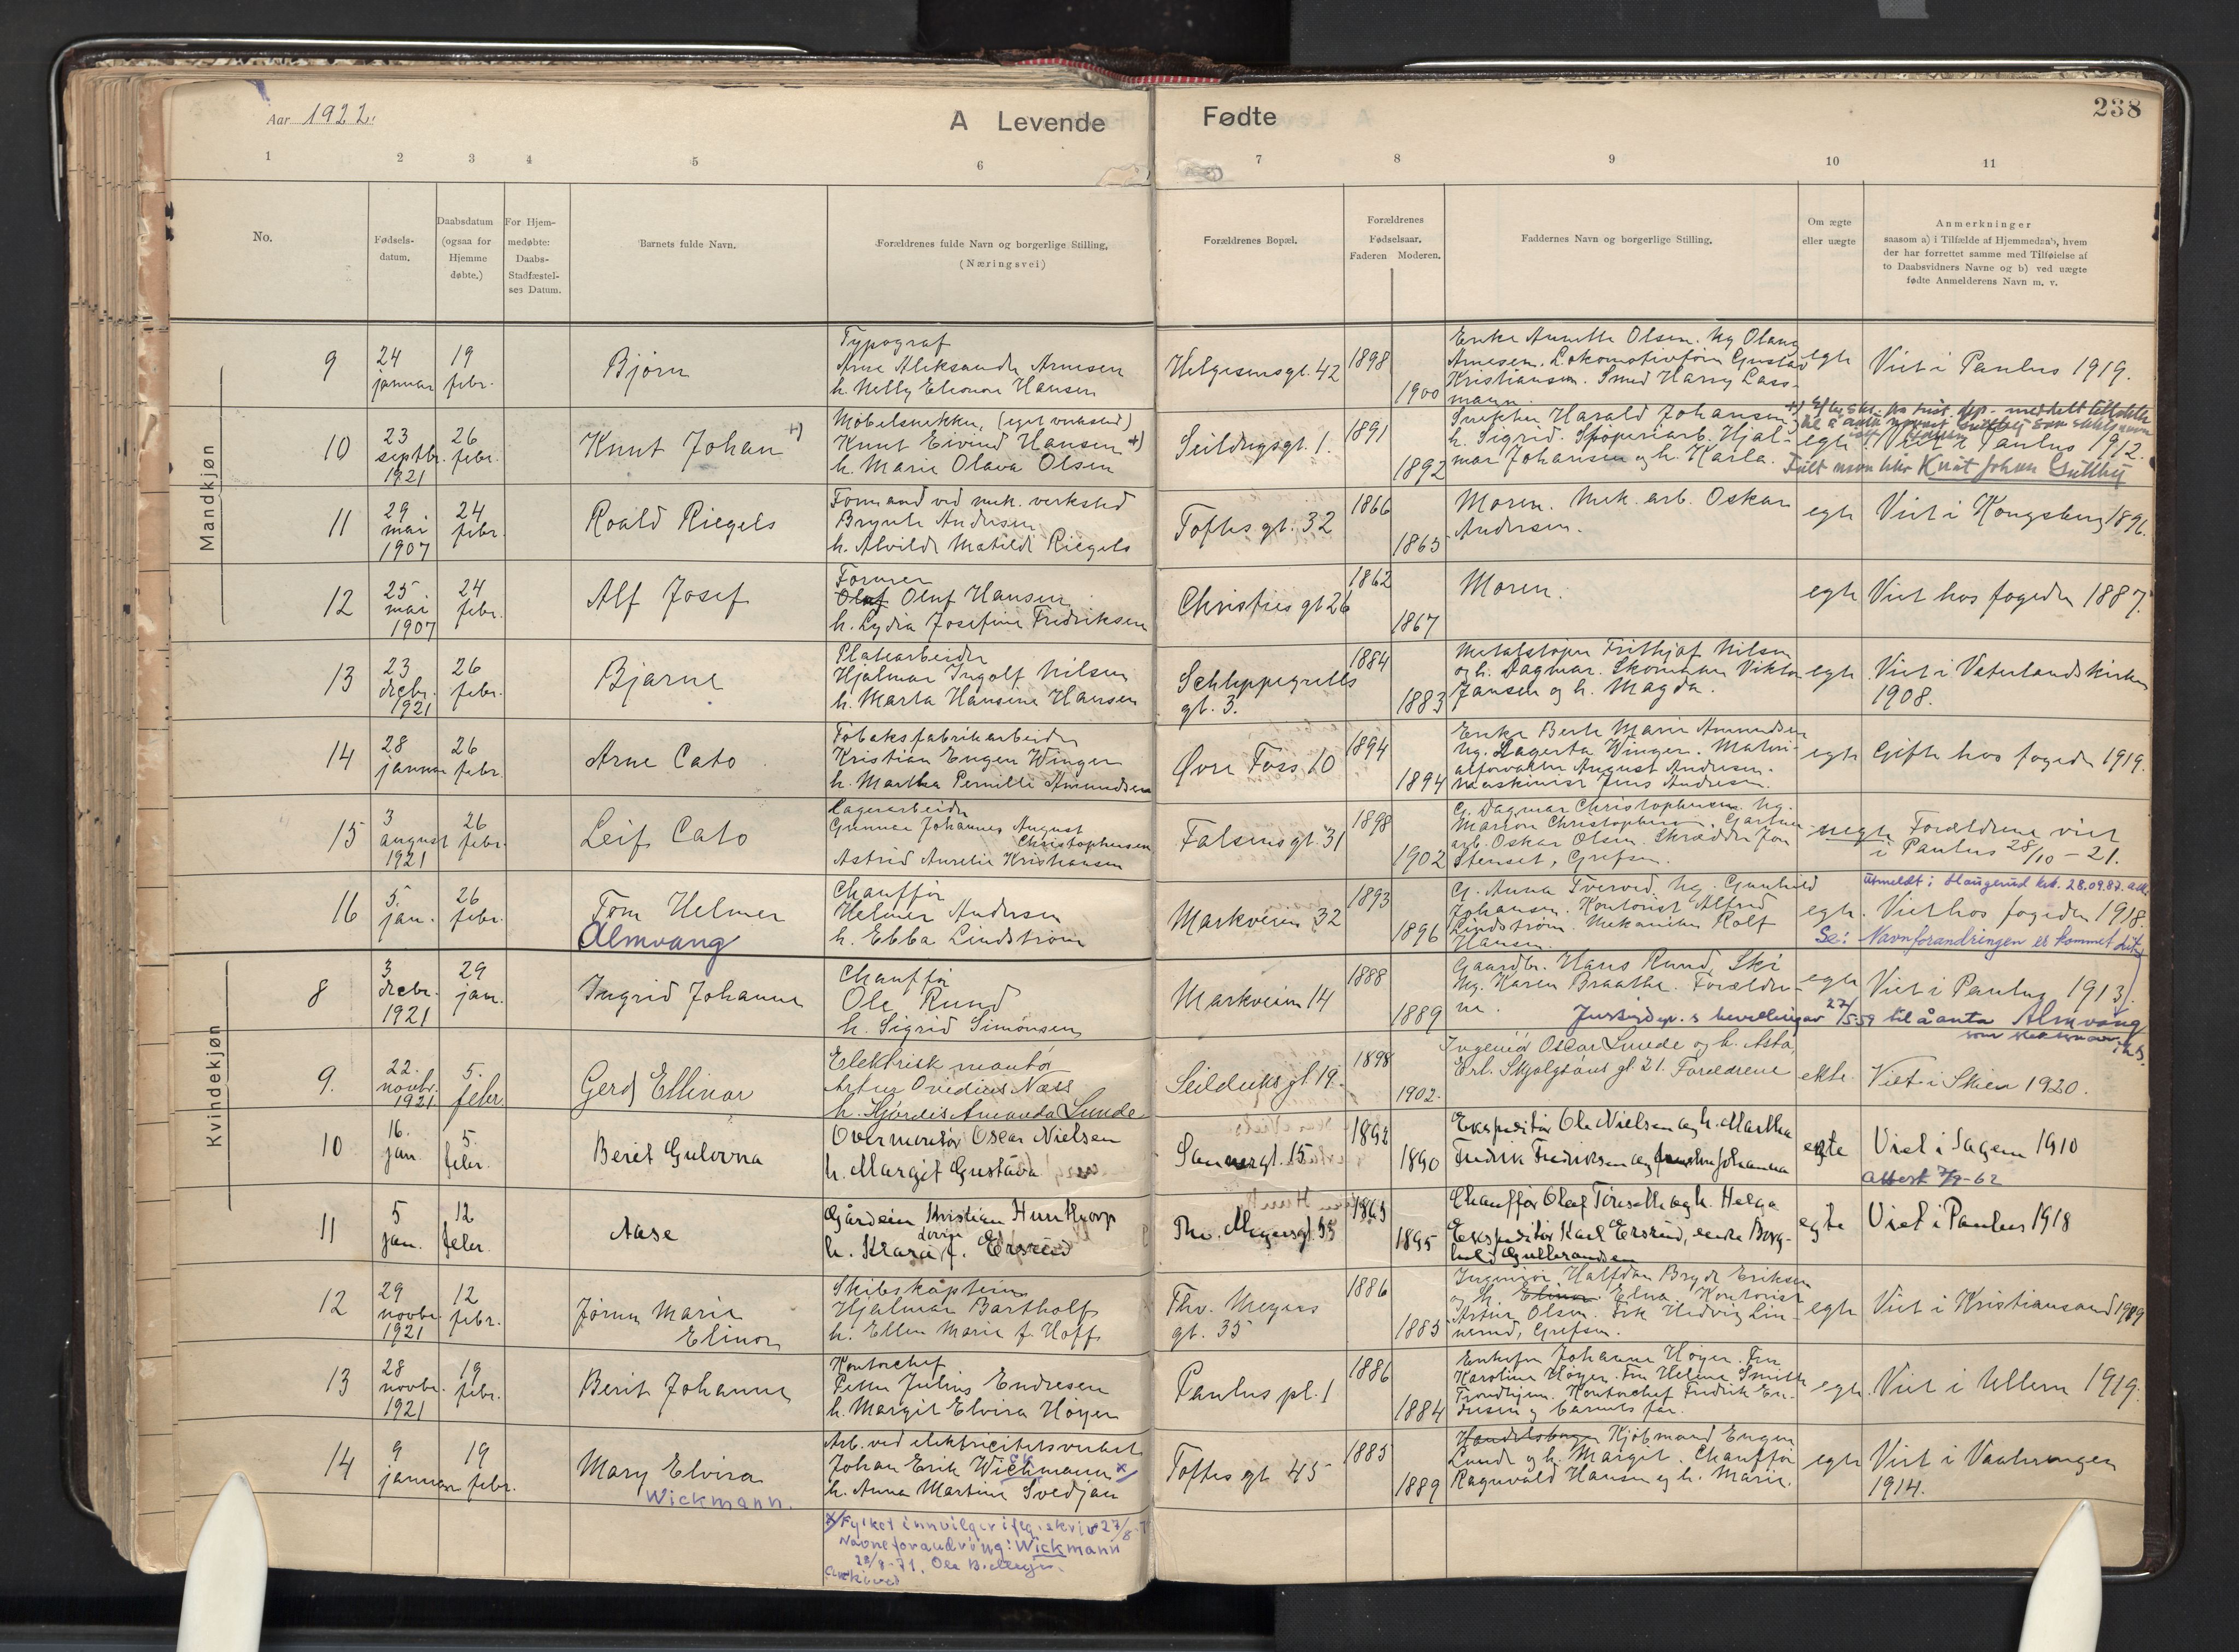 Aar 1922.
A Levende
Fødte
238
1 2 3 4 5 6 7 8 9 10 11
No.
Fødsels-
datum.
Daabsdatum
(ogsaa for
Hjemme
døbte.)
For Hjem-
medøbte:
Daabs-
Stadfæstel-
ses Datum.
Barnets fulde Navn.
Forældrenes fulde Navn og borgerlige Stilling.
(Næringsvei)
Forældrenes Bopæl.
Forældrenes
Fødselsaar.
Faderen Moderen.
Faddernes Navn og borgerlige Stilling.
Om ægte
eller uægte
Anmerkninger
saasom a) i Tilfælde af Hjemmedaab, hvem
der har forrettet samme med Tilføielse af
to Daabsvidners Navne og b) ved uægte
fødte Anmelderens Navn m. v.
Mandkjøn
9
24
januar
19
febr.
Bjørn
Typograf
Arne Aleksander Arnesen
h. Nelly Eleonora Hansen
Helgesensgt. 42
1898
1900
Enke Annette Olsen. Ug Olaug
Arnesen. Lokomotivfører Gustav
Kristiansen. Smed Harry Lass-
mann.
egte
Viet i Paulus 1919.
10
23
septbr.
1921
26
febr.
Knut Johan +)
Møbelsnekker, (eget verksted)
Knut Eivind Hansen +)
h. Marie Olava Olsen
Seildugsgt. 1.
1891
1892
Snekker Harald Johansen
h. Sigrid. Støperiarb. Hjal-
mar Johansen og h. Karla.
egte
Viet i Paulus 1912.
Fullt navn blir Knut Johan Gulthij
11
29
mai
1907
24
febr.
Roald Riegels
Formand ved mek. verksted
Brynte Andersen
h. Alvilde Matilde Riegels
Toftes gt. 32
1866
1865
Moren. Mek. arb. Oskar
Andersen.
egte
Viet i Kongsberg 1896.
12
25
mai
1907
24
febr.
Alf Josef
Former
Oluf Oluf Hansen
h. Lydia Josefine Fredriksen
Christies gt 26
1862
1867
Moren.
egte
Viet hos fogden 1887.
13
23
decbr.
1921
26
febr.
Bjarne
Platearbeider
Hjalmar Ingolf Nilsen
h. Marta Hansine Hansen
Schleppegrells
gt. 3.
1884
1883
Metalstøper Frithjof Nilsen
og h. Dagmar. Skomaker Viktor
Jansen og h. Magda.
egte
Viet i Vaterlandskirken
1908.
14
28
januar
26
febr.
Arne Cato
Tobaksfabrikarbeider
Kristian Eugen Winger
h. Martha Pernille Amundsen
Øvre Foss 10
1894
1894
Enke Berte Marie Amundsen
Ug. Dagerta Winger. Materi-
alforvalter August Andresen.
Maskinist Jens Andresen.
egte
Gifte hos fogden 1919.
15
3
august
1921
26
febr.
Leif Cato
Lagerarbeider
Gunnar Johannes August
Christophersen
Astrid Aurelie Kristiansen
Falsensgt. 31
1898
1902
G. Dagmar Christophersen. Ug.
Marion Christophersen. Gartner-
arb. Oskar Olsen. Skrædder Jon
Stenset, Grefsen.
uegte
Forældrene viet
i Paulus 28/10 - 21.
16
5.
jan.
26
febr.
Tom Helmer
Almvang
Chauffør
Helmer Andersen
h. Ebba Lindstrøm
Markveien 32
1893
1896
G. Anna Tverved. Ug. Gunhild
Johansen. Kontorist Alfred
Lindstrøm. Mekaniker Rolf
Hansen.
egte.
Utmeldt i Haugerud krk. 28.09.87.
Viet hos fogden 1918.
Se: Navnforandringen er kommet hit
Kvindekjøn
8
3
decbr.
1921
29
jan.
Ingrid Johanne
Chauffør
Ole Rund
h. Sigrid Simonsen
Markveien 14
1888
1889
Gaardbr. Hans Rund, Ski
Ug. Karen Braathe. Forældre-
ne.
egte
Viet i Paulus 1913.
Justisdep.s bevilling av 27/5-59 til å anta Almvang
som slektsnavn
9.
22.
novbr.
1921
5.
febr.
Gerd Ellinor
Elektrisk montør
Artur Ovidius Næss
h. Hjørdis Amanda Lunde
Seilduks gt 19.
1898
1902.
Ingeniør Oscar Lunde og h. Asta,
Erl. Skjalgsøns gt 21. Foreldrene
ekte
Viet i Skien 1920.
10
16.
jan.
5.
febr.
Berit Gulovna
Overmontør Oscar Nielsen
h. Margit Gustava
Sannergt. 15
1892
1890
Ekspeditør Ole Nielsen og h. Martha
Fredrik Fredriksen og Johanna
egte
Viet i Sagene 1910
Attest 7/9-62
11
5
jan.
12
febr.
Aase
Gårdeier Kristian Hunthorp
h. Klara f. Ersrud
Thv. Meyersgt. 55
1895
Chauffør Olaf Tøreseth og h. Helga
Ekspeditør Karl Ersrud, enke Borg-
hild Gulbrandsen
egte
Viet i Paulus 1918
12
29
novbr.
1921
12
febr.
Jørun Marie
Elinor
Skibskaptein
Hjalmar Bartholf
h. Ellen Marie f. Hoff
Thv. Meyers
gt. 35
1886
1885
Ingeniør Halfdan Bryde Eriksen
og h. Elinor Elna. Kontorist
Artur Olsen. Frk Hedvig Lin-
nerud, Grefsen.
egte
Viet i Kristiansand 1909
13
28
novbr.
1921
19
febr.
Berit Johanne
Kontorchef
Petter Julius Endresen
h. Margit Elvira Høyer
Paulus pl. 1
1886
1884
Enkefru Johanne Høyer. Fru
Karoline Høyer. Fru Helene Smith
Trondhjem. Kontorchef Fredrik En-
dresen og barnets far.
egte
Viet i Ullern 1919.
14
9
januar
19
febr.
Mary Elvira
Wickmann.
Arb. ved elektricitetsverket
Johan Erik Wichmann x/
h. Anna Martine Svedjan
Toftes gt. 45
1885
1889
Handelsborger Kjøbmand Eugen
Lunde og h. Margit. Chauffør
Ragnvald Hansen og h. Marie.
egte
Viet i Vaalerengen
1914.
x/ Fylket innvilger iflg. skriv 27/8-71
Navneforandring: Wickmann
28/8-71. Ole B.
Arkivert